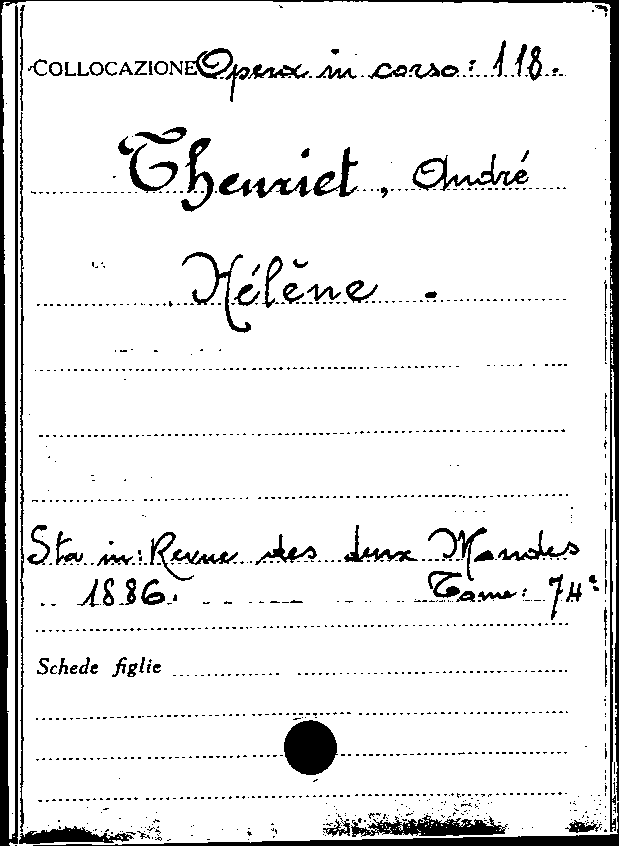 COLLOCAZIONE Opera in corso: 118.
Theuriet, André
Hélène.
Sta in: Revue des deux Mondes
1886. Tome: 74º
Schede figlie